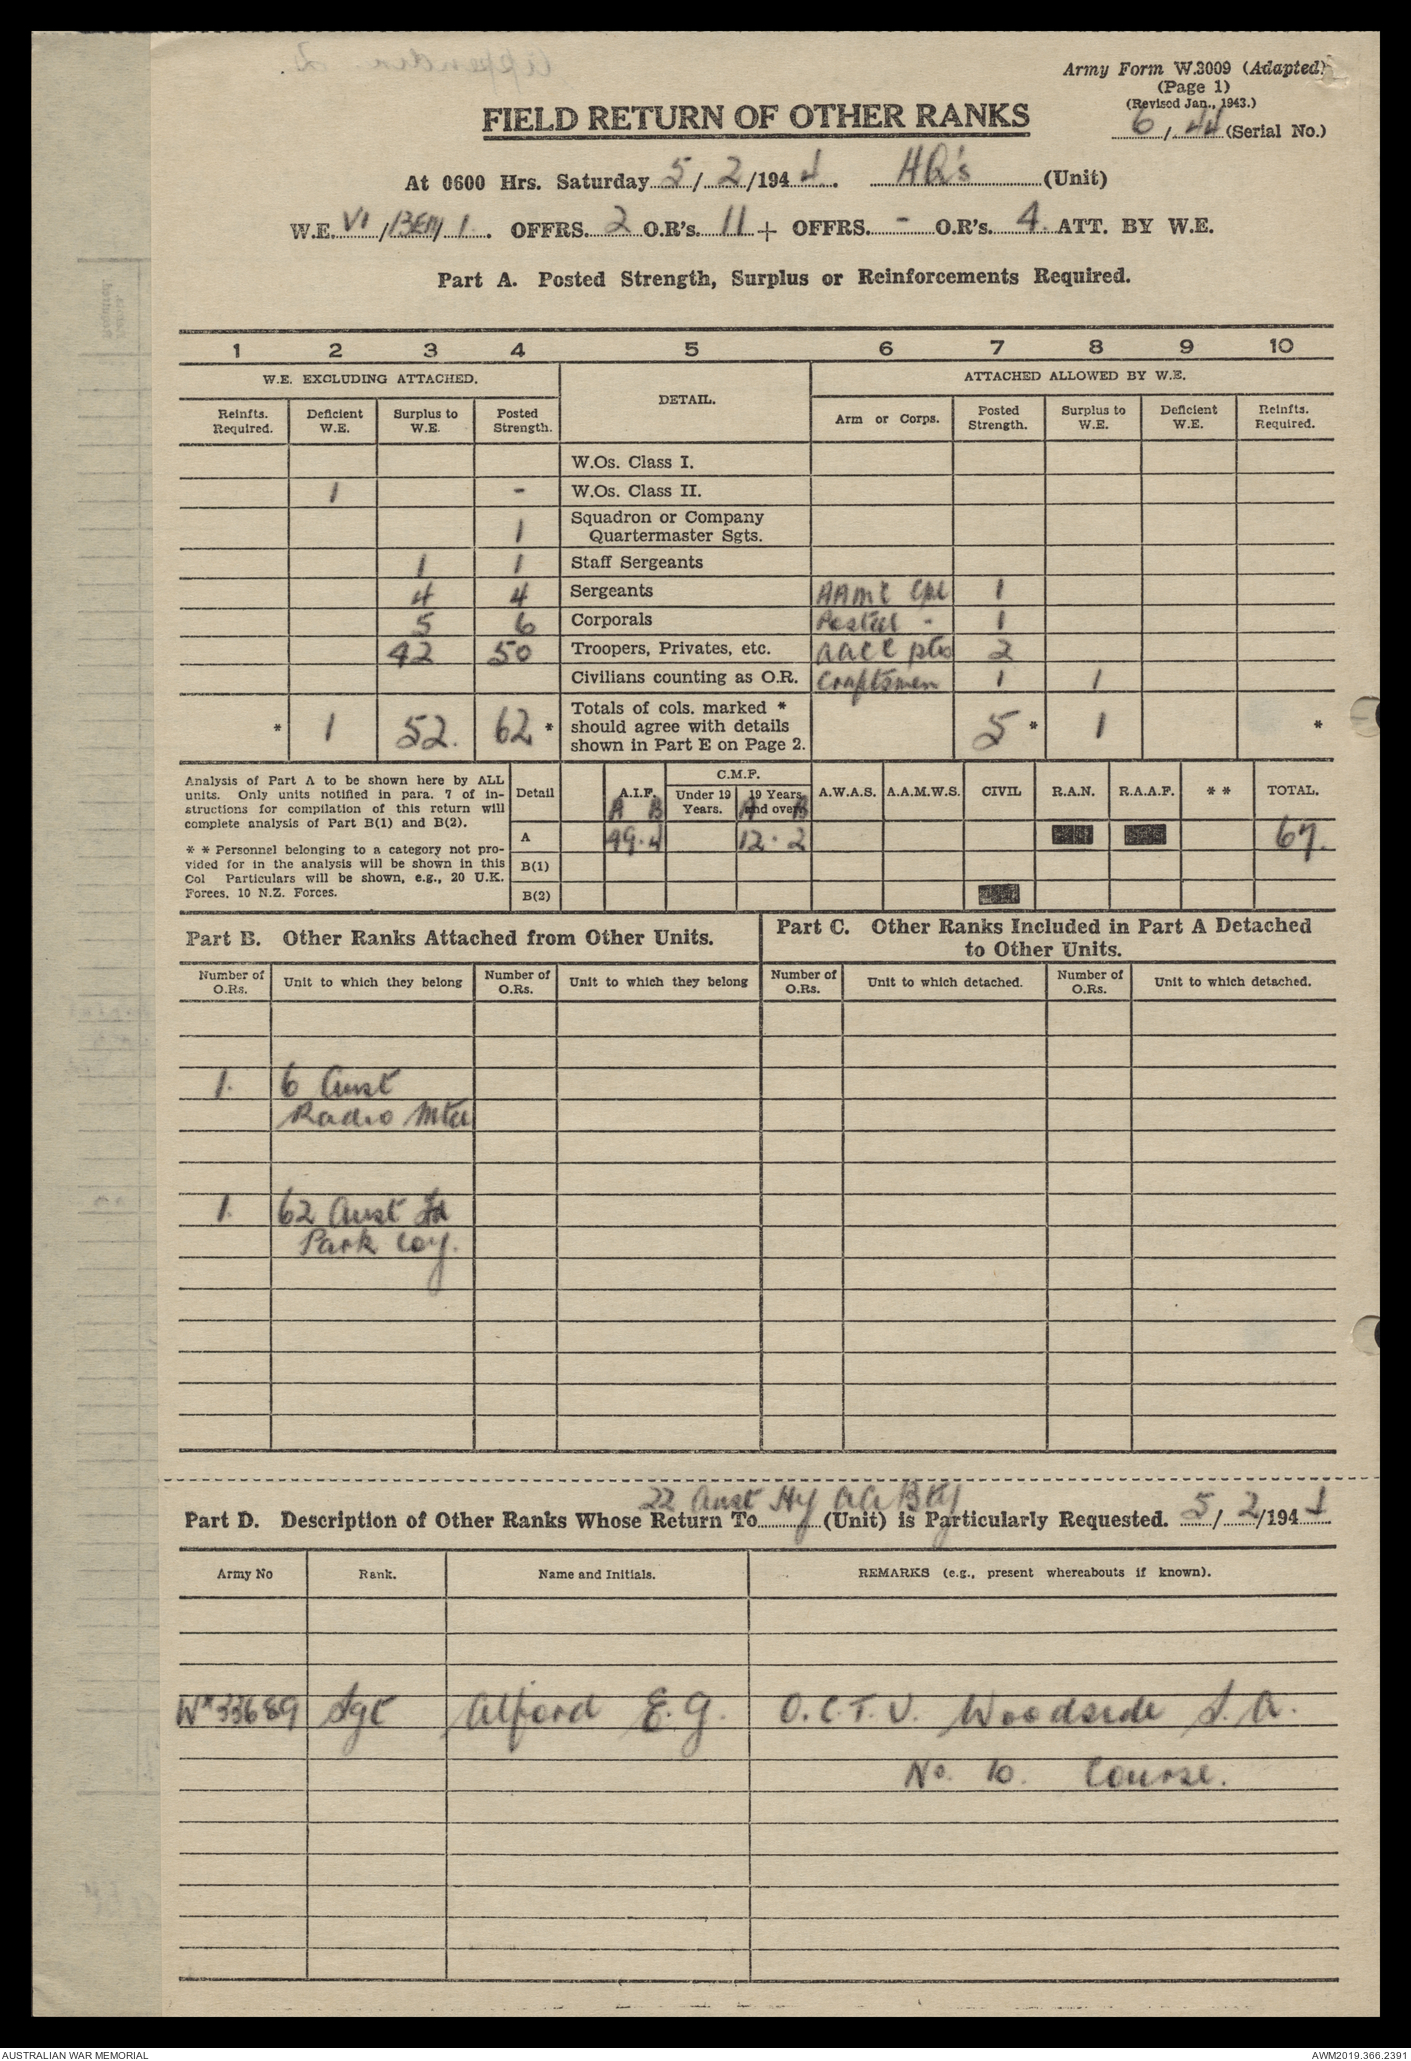 Army Form W.3009 (Adapted)
(Page 1)
(Revised Jan., 1943.)
6/44 (Serial No.)
FIELD RETURN OF OTHER RANKS
At 0600 Hrs. Saturday 5/2/1944. HQ's (Unit)
W.E. VI / / 1. OFFRS. 2 O.R's. 11 + OFFRS. - O.R's. 4. ATT. BY W.E.
Part A. Posted Strength, Surplus or Reinforcements Required.
1 2 3 4 5 6 7 8 9 10
W.E. EXCLUDING ATTACHED. DETAIL. ATTACHED ALLOWED BY W.E.
Reinfts. Required. Deficient W.E. Surplus to W.E. Posted Strength. Arm or Corps. Posted Strength. Surplus to W.E. Deficient W.E. Reinfts. Required.
W.Os. Class I.
1 - W.Os. Class II.
1 Squadron or Company
Quartermaster Sgts.
1 1 Staff Sergeants
4 4 Sergeants AAMC Cpl 1
5 6 Corporals Postal - 1
42 50 Troopers, Privates, etc. AACC ptes 2
Civilians counting as O.R. Craftsmen 1 1
Totals of cols. marked *
* 1 52. 62 * should agree with details 5 * 1 *
shown in Part E on Page 2.
Analysis of Part A to be shown here by ALL
units. Only units notified in para. 7 of in-
structions for compilation of this return will
complete analysis of Part B(1) and B(2).
* * Personnel belonging to a category not pro-
vided for in the analysis will be shown in this
Col Particulars will be shown, e.g., 20 U.K.
Forces, 10 N.Z. Forces.
C.M.F.
Detail A.I.F. Under 19 Years. 19 Years and over A.W.A.S. A.A.M.W.S. CIVIL R.A.N. R.A.A.F. * * TOTAL.
A B A B
A 49.4 12.2 67.
B(1)
B(2)
Part B. Other Ranks Attached from Other Units.
Part C. Other Ranks Included in Part A Detached
to Other Units.
Number of O.Rs. Unit to which they belong Number of O.Rs. Unit to which they belong Number of O.Rs. Unit to which detached. Number of O.Rs. Unit to which detached.
1. 6 Aust
Radio Mtce
1. 62 Aust Fd
Park Coy.
22 Aust Hy AA Bty
Part D. Description of Other Ranks Whose Return To (Unit) is Particularly Requested. 5/2/1944
Army No Rank. Name and Initials. REMARKS (e.g., present whereabouts if known).
Wx33689 Sgt Alford E.G. O.C.T.U. Woodside S.A.
No. 10. Course.
AUSTRALIAN WAR MEMORIAL
AWM2019.366.2391